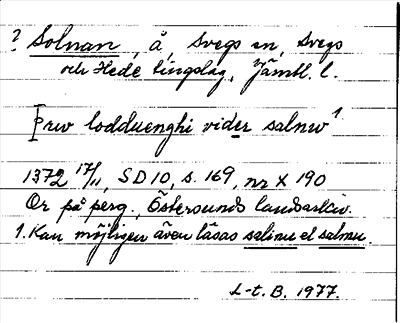 ? Solnan, å, Svegs sn, Svegs
och Hede tingslag, Jämtl. l.
[prw lodduenghi vider salnw¹
1372 17/11, SD 10, s. 169, nr X 190
Or på perg., Östersunds landsarkiv.
1. Kan möjligen även läsas salinu el salmu.
L-t. B. 1977.